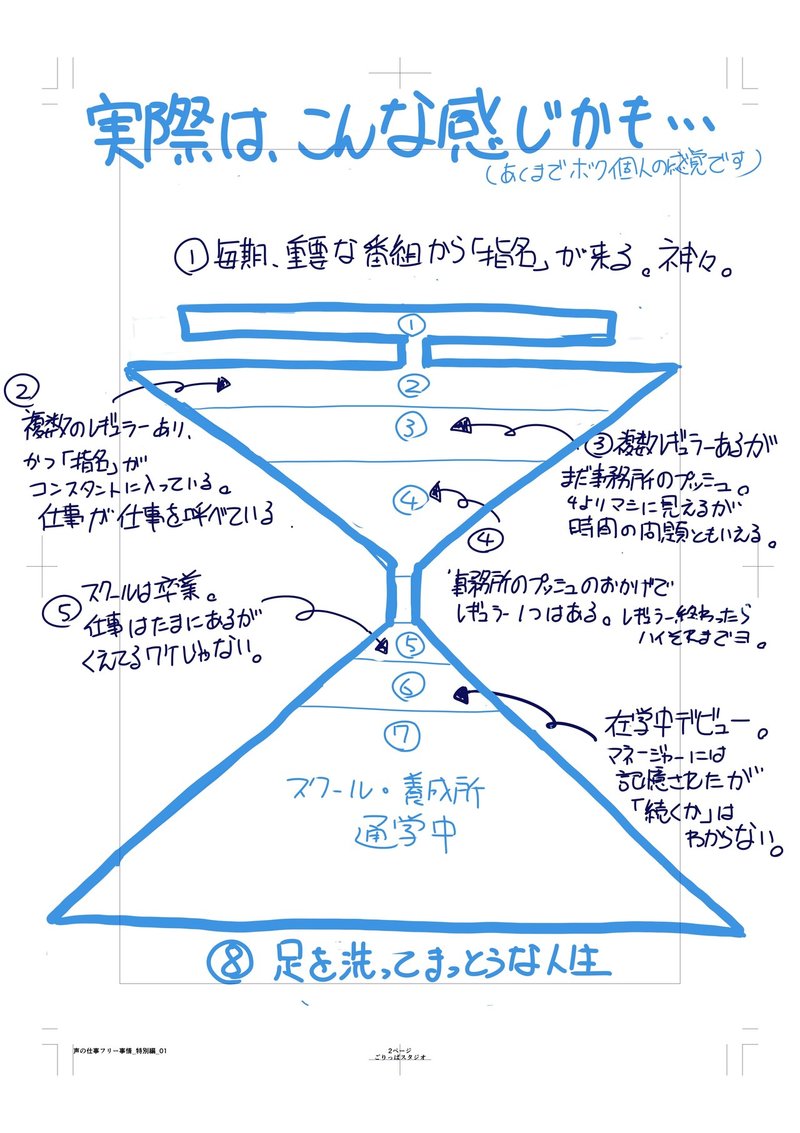 実際は、こんな感じかも…
(あくまでボク個人の感覚です)
①毎期、重要な番組から「指名」が来る。神々。
①
②
②
複数のレギュラーあり、
かつ「指名」が
コンスタントに入っている。
仕事が仕事を呼べている
③
③複数レギュラーあるが
まだ事務所のプッシュ。
4よりマシに見えるが
時間の問題ともいえる。
④
④
事務所のプッシュのおかげで
レギュラー1つはある。レギュラー終わったら
ハイそれまでヨ。
⑤
スクールは卒業。
仕事はたまにあるが
くえてるワケじゃない。
⑤
⑥
在学中デビュー。
マネージャーには
記憶されたが
「続くか」は
わからない。
⑦
スクール・養成所
通学中
⑧ 足を洗ってまっとうな人生
声の仕事フリー事情_特別編_01
2ページ
ごりっぱスタジオ